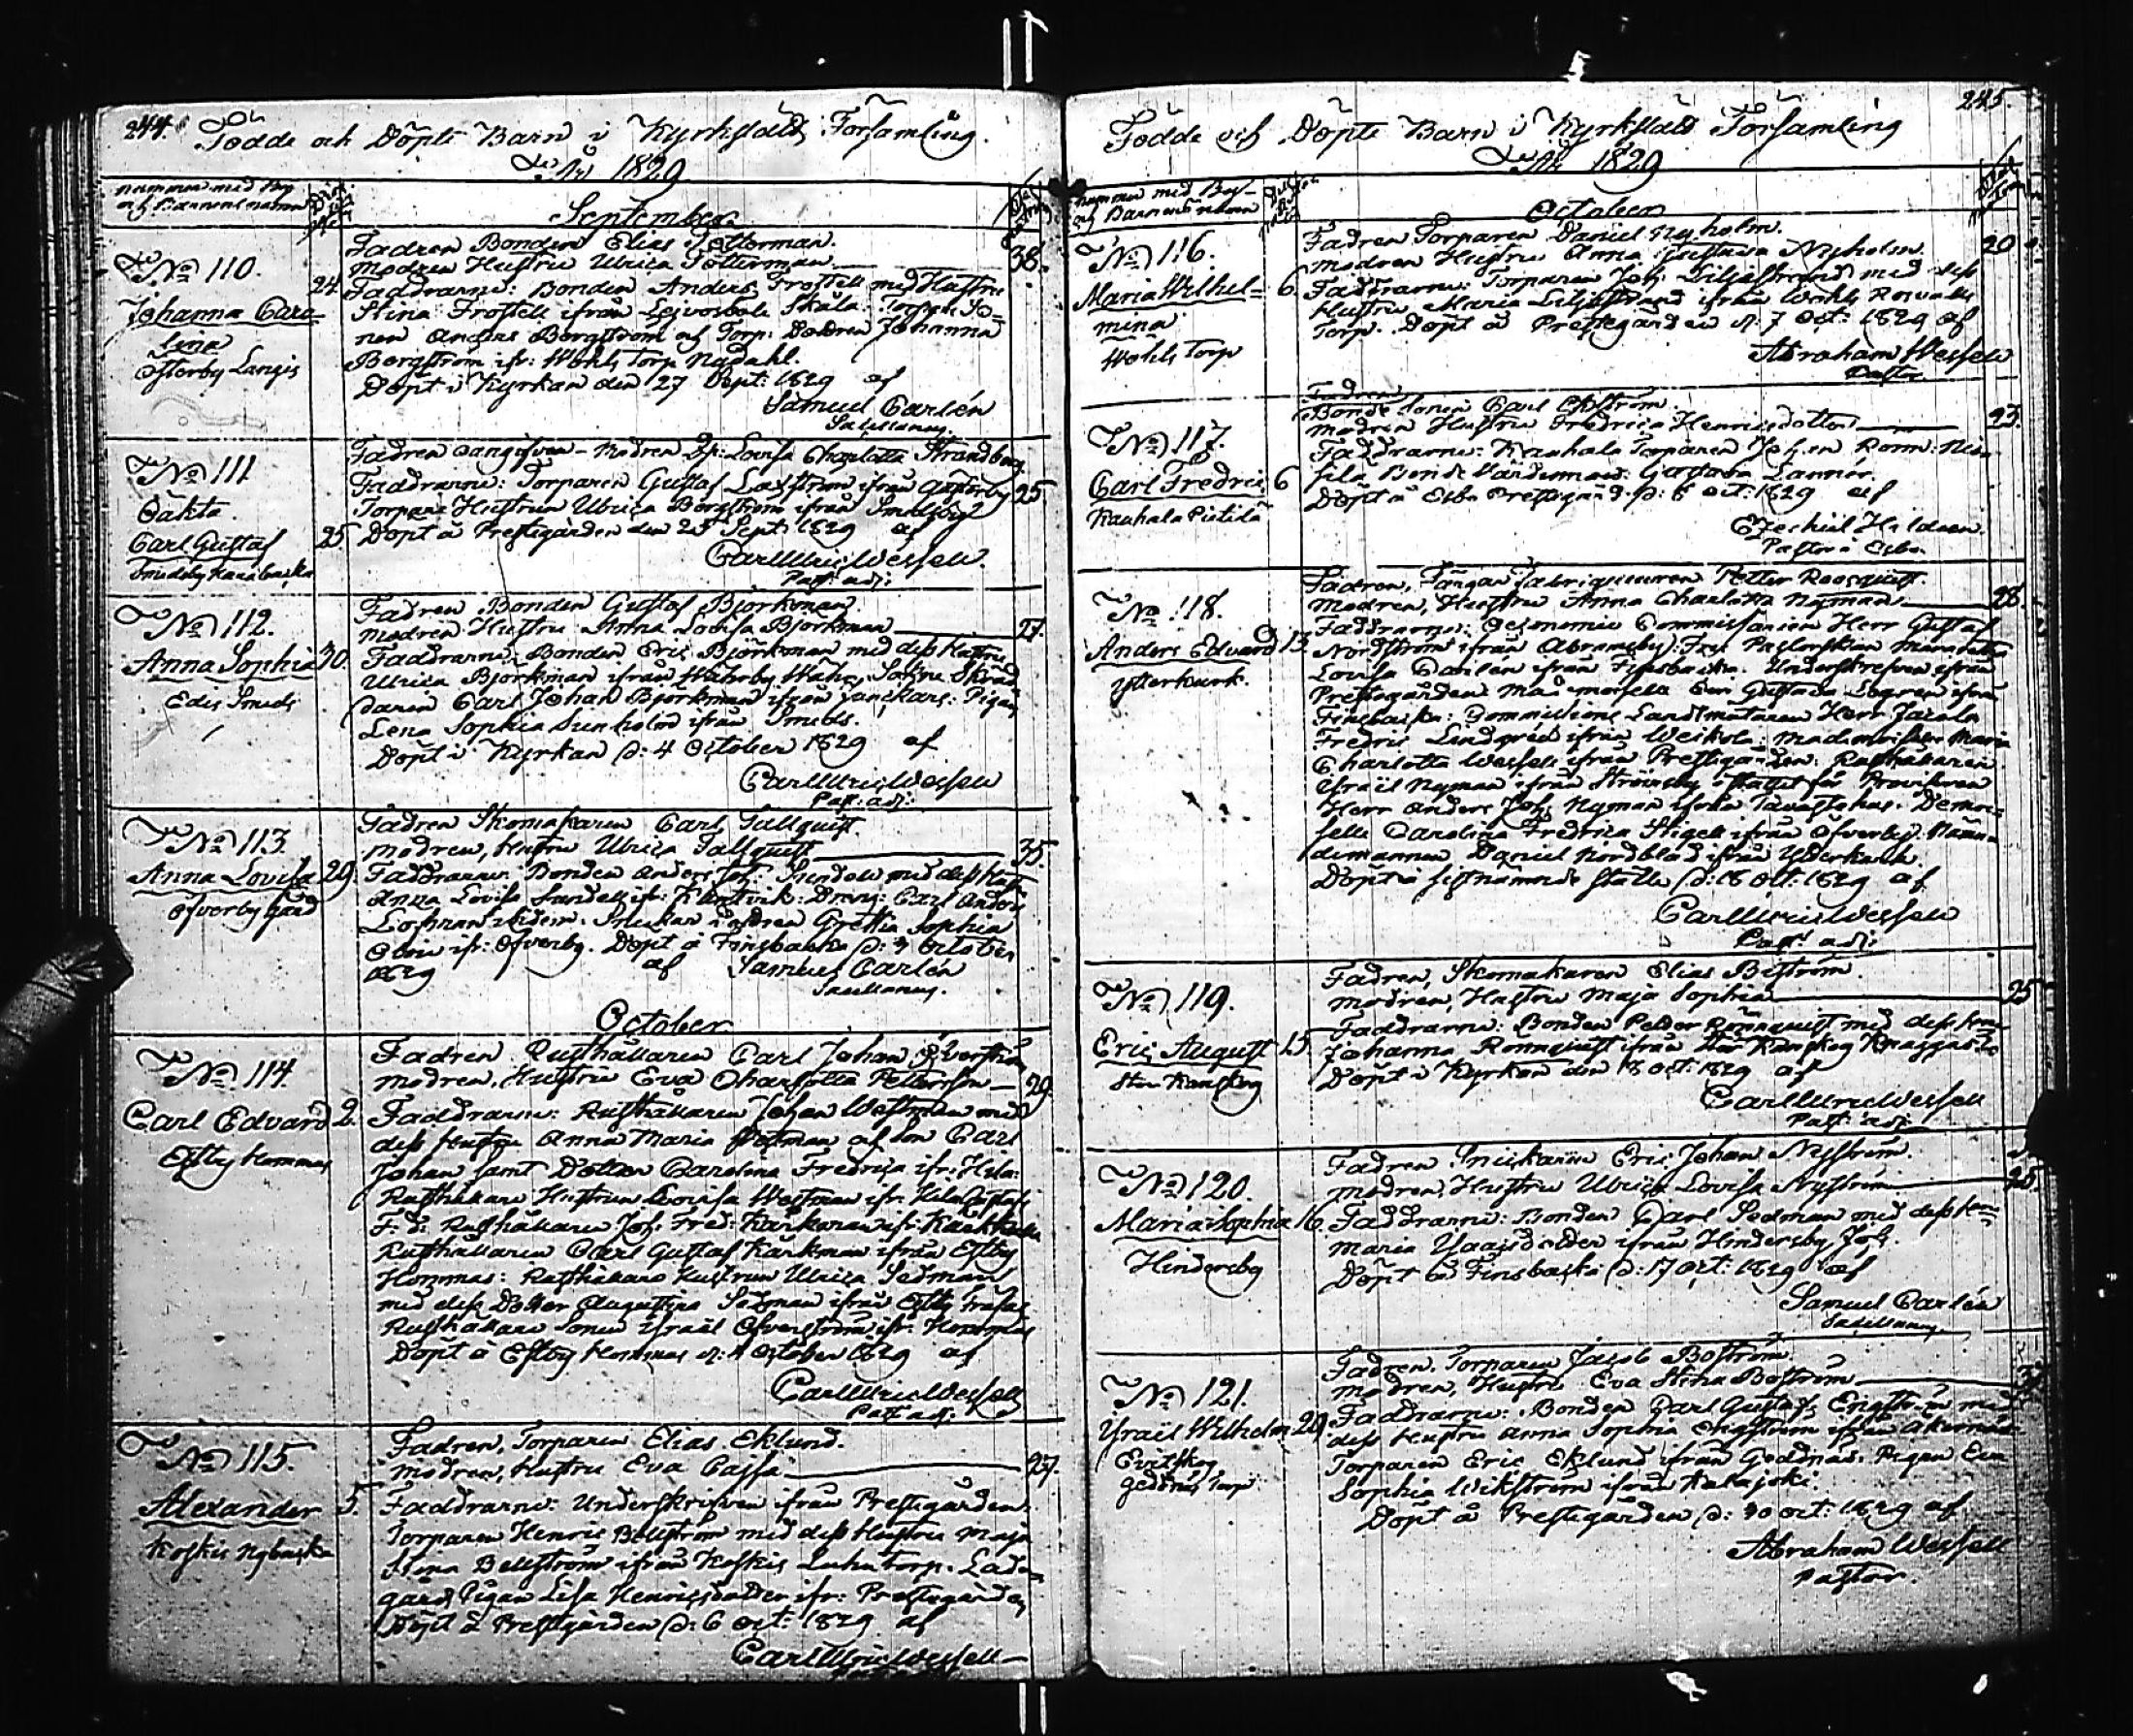 244.
Födde och Döpte Barn i Kyrkslätt Församling.
År 1829
nummer med By
och Barnens namn
September
No 110.
Johanna Caro-
lina
Österby Langis
24
Fadren Bonden Elias Söderman.
Modren Hustru Ulrica Söderman 38.
Faddrarne: Bonden Anders Frostell med Hustru
Stina Frostell ifrån Skäla
nen Anders Bergström och Torp: Dottren Johanna
Bergström ifr: Wohls Torp Nydahl.
Döpt i Kyrkan den 27 Sept: 1829 af
Samuel Carlén
No 111
Oäkta
Carl Gustaf
25
Fadren oangifven - Modren Lovisa Charlotta Strandberg
Faddrarne: Torparen Gustaf Laxström ifrån 25
Torpare Hustrun Ulrica Bergström ifrån Smedsby
Döpt å Prestegården den 25 Sept: 1829 af
Carl Ulric Wessell.
Past: adj:
No 112.
Anna Sophia 30.
Edis Smeds
Fadren Bonden Gustaf Björkman
Modren Hustru Anna Lovisa Björkman 27.
Faddrarne: Bonden Eric Björkman med dess Hustru
Ulrica Björkman ifrån
daren Carl Johan Björkman ifrån Pigan
Lena Sophia ifrån Smeds.
Döpt i Kyrkan d: 4 October 1829 af
Carl Ulric Wessell
Past: adj:
No 113
Anna Lovisa 29.
Öfverby Gård
Fadren Skomakaren Carl Tallquist.
Modren, Hustru Ulrica Tallquist 35.
Faddrarne: Bonden Anders Joh: med dess Hust:
Anna Lovisa ifr: Kantvik: Dreng: Carl Anders
Gretha Sophia
ifr: Öfverby. Döpt å Finsbacka d: October
1829 af Samuel Carlén
October
No 114.
Carl Edvard 2.
Estby Hommas
Fadren Rusthållaren Carl Johan
Modren, Hustru Eva Charlotta Pettersson 29.
Faddrarne: Rusthållaren Johan Westman med
dess hustru Anna Maria Westman och Son Carl
Johan samt Dotter Carolina Fredrica ifr: Hila:
Rusthållare Hustrun Lovisa Westman ifr: Hila
F. d: Rusthållaren Joh: Fred: Karkman ifr:
Rusthållaren Carl Gustaf Karkman ifrån Estby
Hommas: Rusthållare Hustrun Ulrica Sedman
med dess Dotter Augustina Sedman ifrån Estby
Rusthållare Sonen Israël Öfverström ifr: Hommas
Döpt å Estby Hommas d: 4 October 1829 af
Carl Ulric Wessell
Past: adj:
No 115.
Alexander 5.
Koskis Nybacka
Fadren, Torparen Elias Eklund.
Modren, Hustru Eva Cajsa 27.
Faddrarne: Underskrifven ifrån Prestegården.
Torparen Henric Bellström med dess Hustru Maja
Stina Bellström ifrån Koskis torp. Lade-
gårds Pigan Lisa Henricsdotter ifr: Prestegården
Döpt å Prestgården d: 6 Oct: 1829 af
Carl Ulric Wessell
245.
Födde och Döpte Barn i Kyrkslätt Församling
År 1829
nummer med By-
och Barnens namn
October
No 116.
Maria Wilhel- 6.
mina
Wohls Torp
Fadren Torparen Daniel Nyholm.
Modren Hustru Anna Gustava Nyholm 20
Faddrarne: Torparen Joh: Liljestrand med dess
Hustru Maria Liljestrand ifrån Wohls Rosvalls
Torp. Döpt å Prestegården d: 7 Oct: 1829 af
Abraham Wessell
Pastor.
No 117.
Carl Fredric 6
Kauhala Pietilä
Fadren
Bonde Sonen Carl Ekström
Modren Hustru Fredrica Henricsdotter 23.
Faddrarne: Kauhala Torparen
Gustava Lannér.
Döpt å Esbo Prestegård d: 8 Oct: 1829 af
Ezechiel Hildeen.
Pastor i Esbo.
No 118.
Anders Edvard 13.
Ytterkurk.
Fadren, Petter Roosquist.
Modren, Hustru Anna Charlotta Nyman 28.
Faddrarne: Oeconomie Commissarien Herr Gustaf
Nordström ifrån Abramsby: Fru Pastorskan Margaretha
Lovisa Carlén ifrån Finsbacka. Underskrefven ifrån
Prestegården Mademoiselle Eva Gustava Logren ifrån
Finsbacka: Commissions Landtmätaren Herr Jacob
Fredric Lindgren ifrån Weikola: Mademoiselle Maria
Charlotta Wessell ifrån Prestegården: Rusthållaren
Israël Nyman ifrån Strömsby i stället för Provisoren
Herr Anders Joh: Nyman ifrån Tavastehus. Demoi-
selle Carolina Fredrica Stigell ifrån Öfverby. Nämn-
demannen Daniel Nordblad ifrån Ytterkurk.
Döpt å sistnämnde ställe d: 18 Oct: 1829 af
Carl Ulric Wessell
Past: adj:
No 119.
Eric August 15
Stor Kanskog
Fadren, Skomakaren Elias Biström.
Modren, Hustru Maja Sophia 25
Faddrarne: Bonden Petter Rönnquist med dess hustru
Johanna Rönnquist ifrån Stor Kanskog
Döpt i Kyrkan den 18 Oct: 1829 af
Carl Ulric Wessell
Past: adj:
No 120.
Maria Sophia 16.
Hindersby
Fadren Snickaren Eric Johan Nyström.
Modren, Hustru Ulrica Lovisa Nyström 25.
Faddrarne: Bonden Carl Sedman med dess hustru
Maria ifrån Hindersby
Döpt å Finsbacka d: 17 Oct: 1829 af
Samuel Carlén
No 121.
Israël Wilhelm 29.
Evitskog
Geddnäs torp
Fadren Torparen Jacob Boström.
Modren, Hustru Eva Stina Boström
Faddrarne: Bonden Carl Gustaf Engström med
dess hustru Anna Sophia Engström ifrån
Torparen Eric Eklund ifrån Geddnäs. Pigan Eva
Sophia Wikström ifrån
Döpt å Prestegården d: 30 Oct: 1829 af
Abraham Wessell
Pastor.